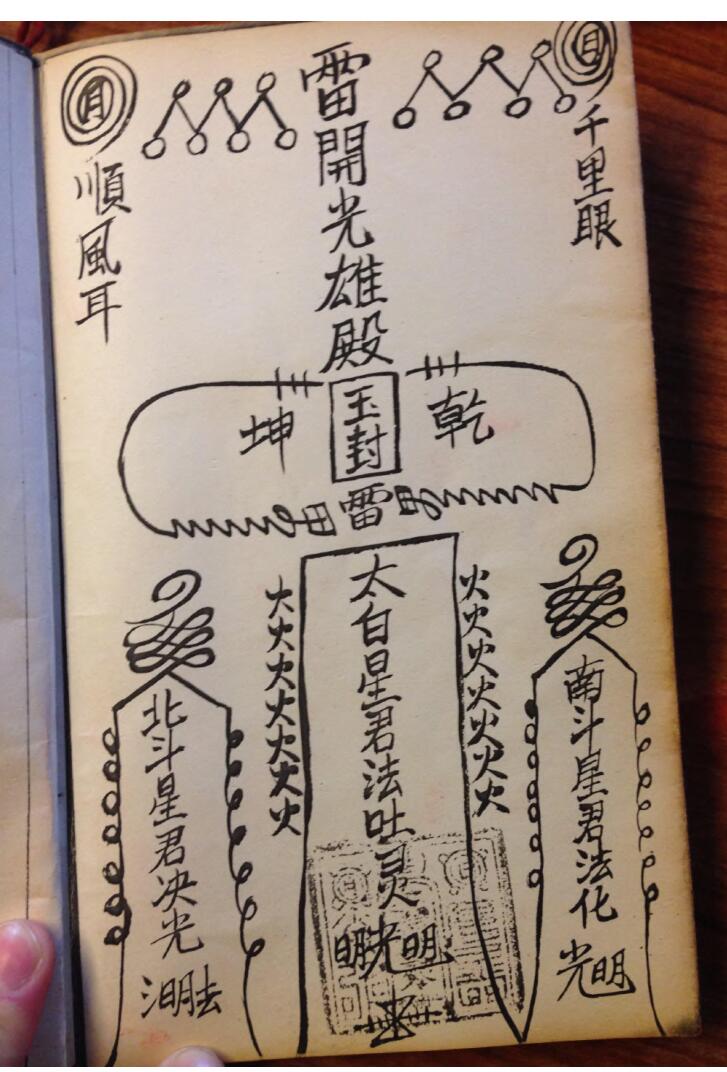 月
日
千里眼
雷開光雄殿
順風耳
乾
玉封
坤
雷
南斗星君法化
光明
火火火火火火火火
太白星君法吐灵
明光明
火火火火火火火
北斗星君决光